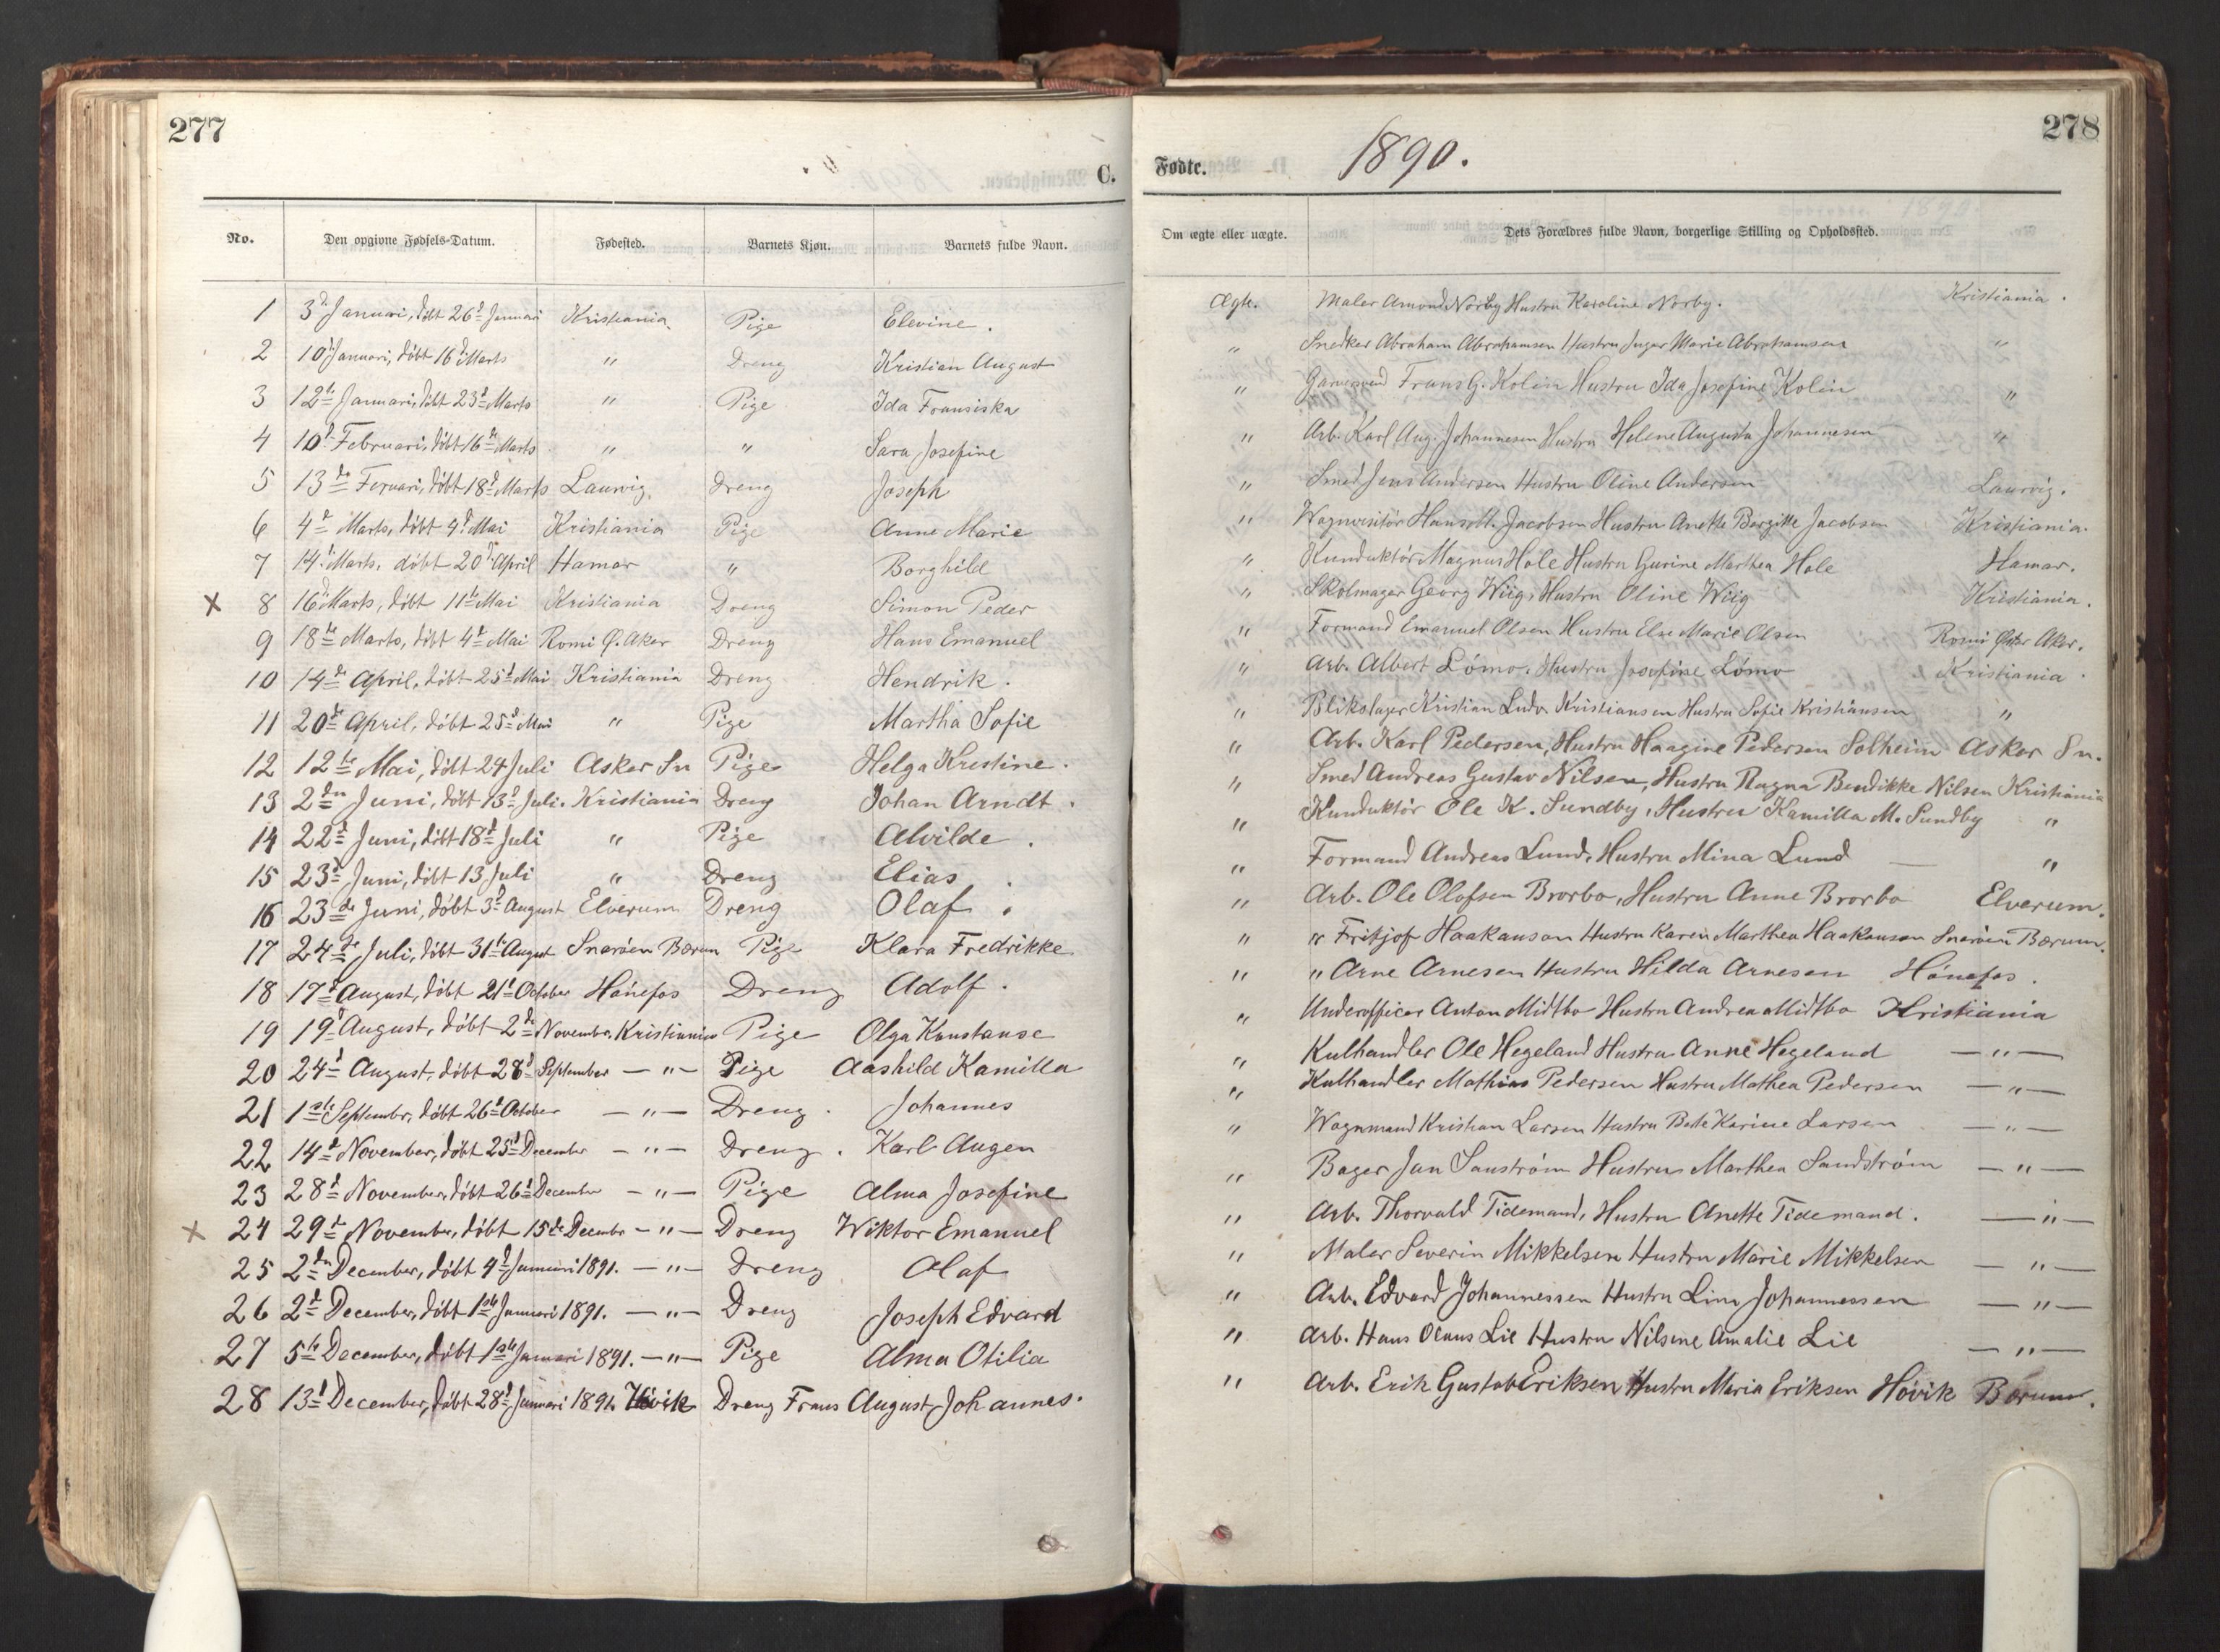 277
C.
No. Den opgivne Fødsels-Datum. Fødested. Barnets Kjøn. Barnets fulde Navn.
1 3d Januari, døbt 26d Januari Kristiania. Pige Elevine.
2 10d Januari, døbt 16d Marts " Dreng Kristian August
3 12te Januari, døbt 23d Marts " Pige Ida Fransiska
4 10d Februari, døbt 16de Marts " " Sara Josefine
5 13de Feruari, døbt 18d Marts Laurvig. Dreng Joseph
6 4d Marts, døbt 4d Mai Kristiania Pige Anne Marie
7 14d Marts, døbt 20d April Hamar " Borghild
x 8 16d Marts, døbt 11te Mai Kristiania Dreng Simon Peder
9 18de Marts, døbt 4d Mai Romi Ø. Aker Dreng Hans Emanuel
10 14de April, døbt 25d Mai Kristiania Dreng Hendrik.
11 20de April, døbt 25d Mai " Pige Martha Sofie
12 12te Mai, døbt 24 Juli Asker Sn Pige Helga Kristine.
13 2den Juni, døbt 13d Juli. Kristiania Dreng Johan Arndt.
14 22d Juni, døbt 18d Juli " Pige Alvilde.
15 23d Juni, døbt 13 Juli " Dreng Elias.
16 23de Juni, døbt 3d August Elverum Dreng Olaf.
17 24de Juli, døbt 31te August Snarøen Bærum Pige Klara Fredrikke
18 17d August, døbt 21d October Hønefos Dreng Adolf.
19 19d August, døbt 2de Novembr. Kristiania Pige Olga Konstanse
20 24d August, døbt 28d September — " — Pige Aashild Kamilla
21 1ste Septembr, døbt 26d October — " — Dreng. Johannes
22 14d November, døbt 25d December — " — Dreng. Karl Augen
23 28d November, døbt 26d December — " — Pige Alma Josefine
x 24 29de November, døbt 15de Decembr — " — Dreng Wiktor Emanuel
25 2den December, døbt 4d Januari 1891. — " — Dreng Olaf
26 2d December, døbt 1ste Januari 1891. — " — Dreng Joseph Edvard
27 5te December, døbt 1ste Januari 1891. — " — Pige Alma Otilia
28 13d December, døbt 28d Januari 1891. Høvik Dreng Frans August Johannes.
278
Fødte. 1890.
Om ægte eller uægte. Dets Forældres fulde Navn, borgerlige Stilling og Opholdssted.
Ægte. Maler Amund Norby Hustru Karoline Norby. Kristiania.
" Snedker Abraham Abrahamsen Hustru Inger Marie Abrahamsen "
" Frans G. Kolin Hustru Ida Josefine Kolin "
" Arb. Karl Aug. Johannesen Hustru Helene Augusta Johannesen "
" Smed Jens Andersen Hustru Oline Andersen Laurvig.
" Wognvisitör Hans M. Jacobsen Hustru Anette Bergitte Jacobsen Kristiania.
" Kunduktör Magnus Hole Hustru Gurine Marthea Hole Hamar.
" Skolmager Georg Wiig, Hustru Oline Wiig Kristiania.
" Formand Emanuel Olsen Hustru Else Marie Olsen Romi Øster Aker.
" Arb. Albert Lömo. Hustru Josefine Lömo Kristiania.
" Blikslager Kristian Ludv. Kristiansen Hustru Sofie Kristiansen "
" Arb. Karl Pedersen, Hustru Haagine Pedersen Solheim Asker Sn.
" Smed Andreas Gustav Nilsen, Hustru Ragna Bendikke Nilsen Kristiania
" Kunduktör Ole K. Sundby, Hustru Kamilla M. Sundby "
" Formand Andreas Lund, Hustru Mina Lund — "
" Arb. Ole Olofsen Brorbo, Hustru Anne Brorbo Elverum.
" " Fritjof Haakanson Hustru Karen Marthea Haakanson Snarøen Bærum.
" " Arne Arnesen Hustru Hilda Arnesen Hönefos.
" Underofficer Anton Midtbo Hustru Andrea Midtbo Kristiania
" Kulhandler Ole Hegeland Hustru Anne Hegeland — " —
" Kulhandler Mathias Pedersen Hustru Mathea Pedersen — " —
" Wognmand Kristian Larsen Hustru Bethe Karine Larsen — " —
" Bager Jan Sanström Hustru Marthea Sandström — " —
" Arb. Thorvald Tidemand, Hustru Anette Tidemand. — " —
" Maler Severin Mikkelsen Hustru Marie Mikkelsen — " —
" Arb. Edvard Johannessen Hustru Lina Johannessen — " —
" Arb. Hans Olaus Lie Hustru Nilsine Amalie Lie — " —
" Arb. Erik Gustav Eriksen Hustru Maria Eriksen Hövik Bærum.